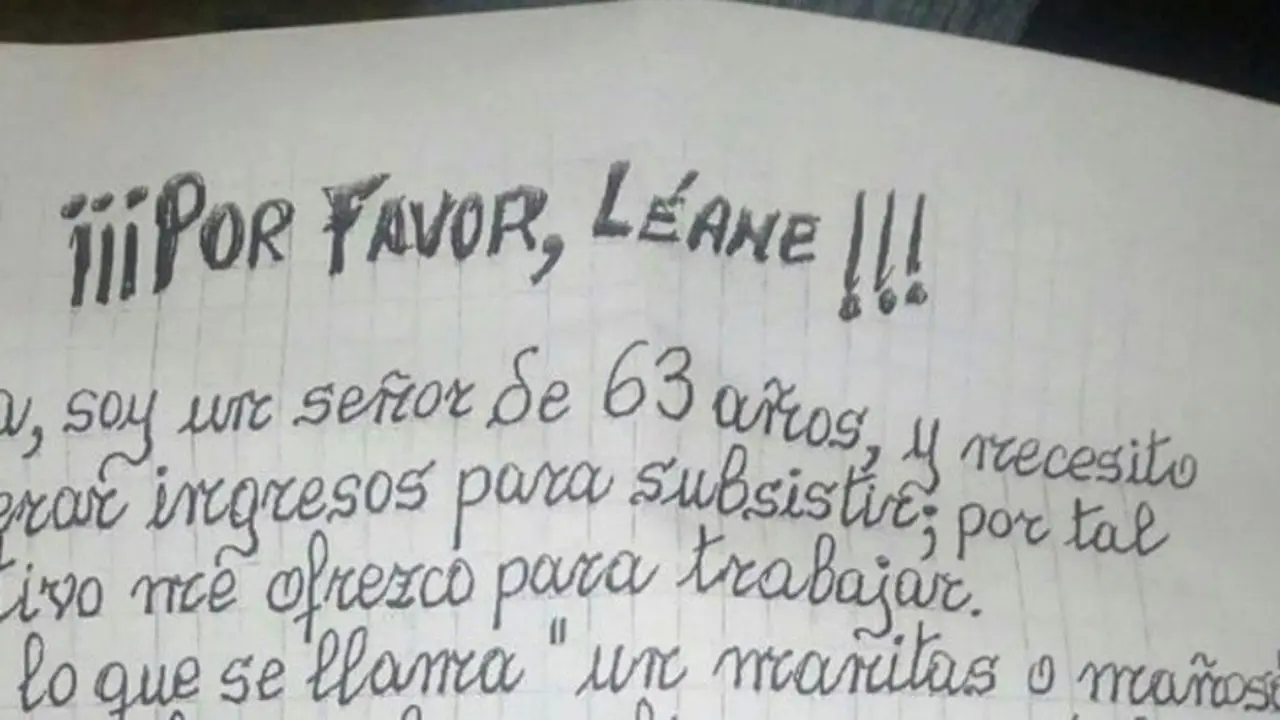 ¡¡¡POR FAVOR, LÉAME!!!
soy un señor de 63 años, y necesito
ingresos para subsistir; por tal
me ofrezco para trabajar.
lo que se llama "un mañitas o mañoso